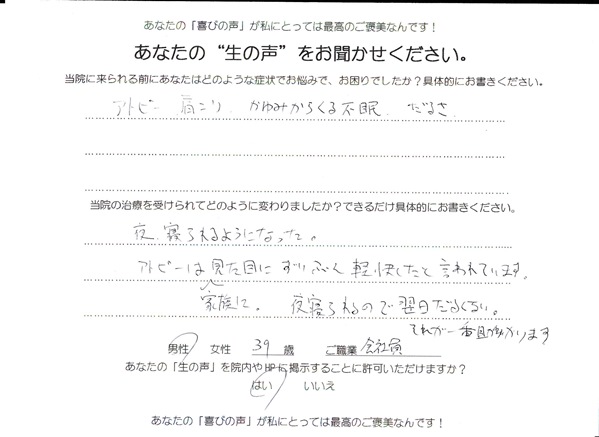 あなたの「喜びの声」が私にとっては最高のご褒美なんです！
あなたの“生の声”をお聞かせください。
当院に来られる前にあなたはどのような症状でお悩みで、お困りでしたか？具体的にお書きください。
アトピー 肩こり かゆみからくる不眠、だるさ
当院の治療を受けられてどのように変わりましたか？できるだけ具体的にお書きください。
夜、寝られるようになった。
アトピーは見た目にずいぶん軽快したと言われています。
家族に。 夜寝られるので翌日だるくない。
それが一番助かります
男性 女性 39 歳 ご職業 会社員
あなたの「生の声」を院内やHPに掲示することに許可いただけますか？
はい いいえ
あなたの「喜びの声」が私にとっては最高のご褒美なんです！